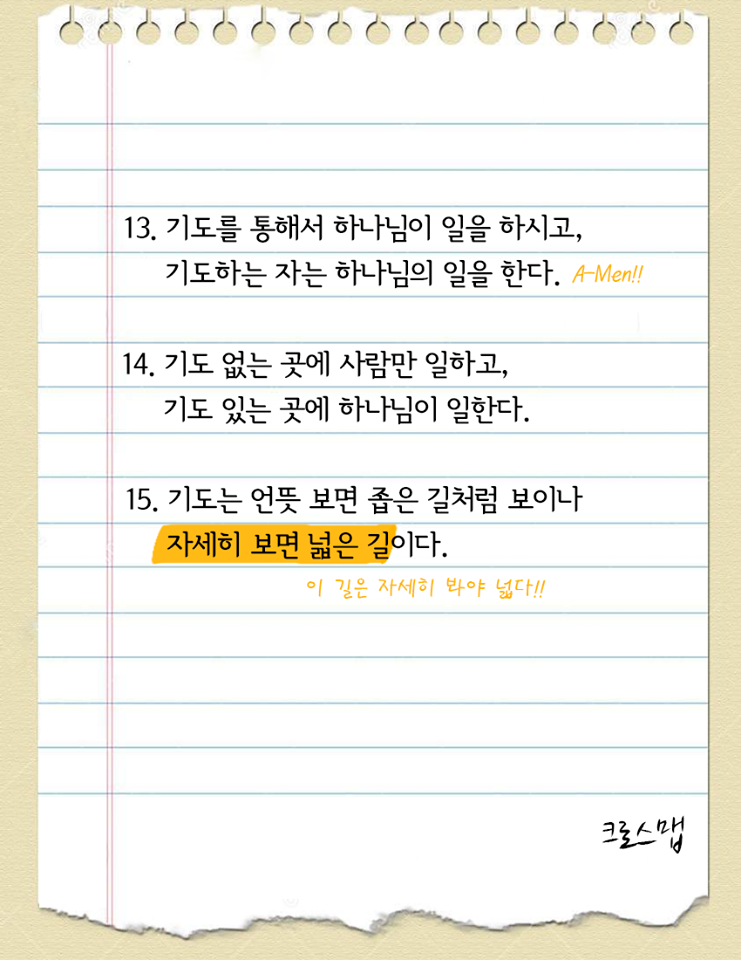 13. 기도를 통해서 하나님이 일을 하시고,
기도하는 자는 하나님의 일을 한다. A-Men!!
14. 기도 없는 곳에 사람만 일하고,
기도 있는 곳에 하나님이 일한다.
15. 기도는 언뜻 보면 좁은 길처럼 보이나
자세히 보면 넓은 길이다.
이 길은 자세히 봐야 넓다!!
크로스맵